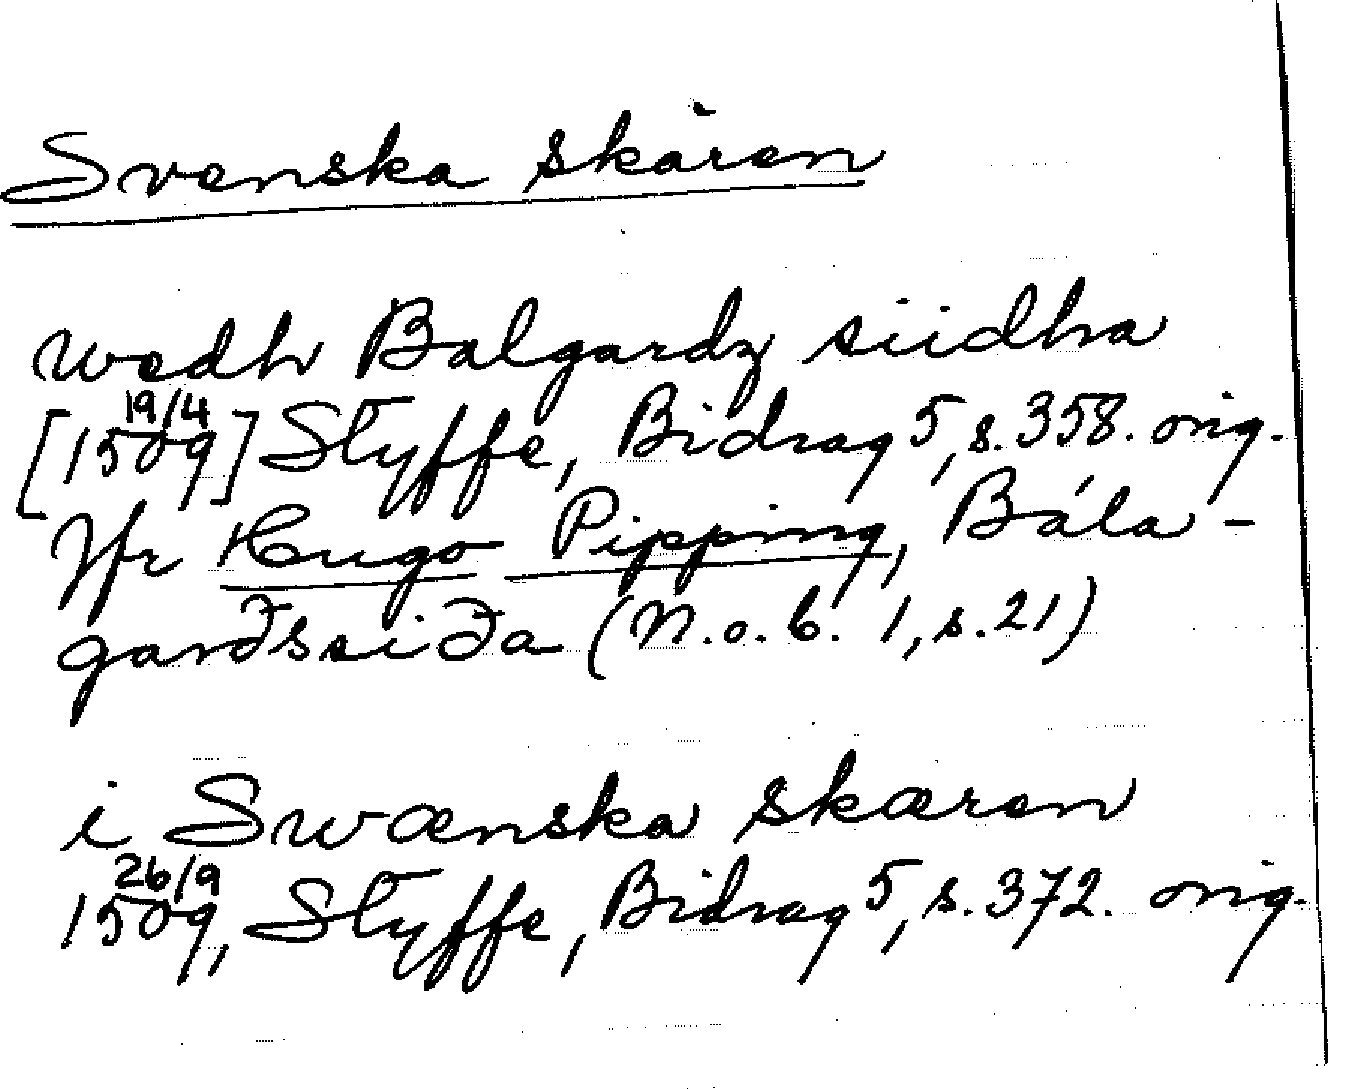 Svenska skären
wedh Balgardz siidha
19/4
[1509] Styffe, Bidrag 5, s. 358. orig.
Jfr Hugo Pipping, Bála-
garðssiða (N.o.b. 1, s. 21)
i Swænska skæren
26/9
1509, Styffe, Bidrag 5, s. 372. orig.